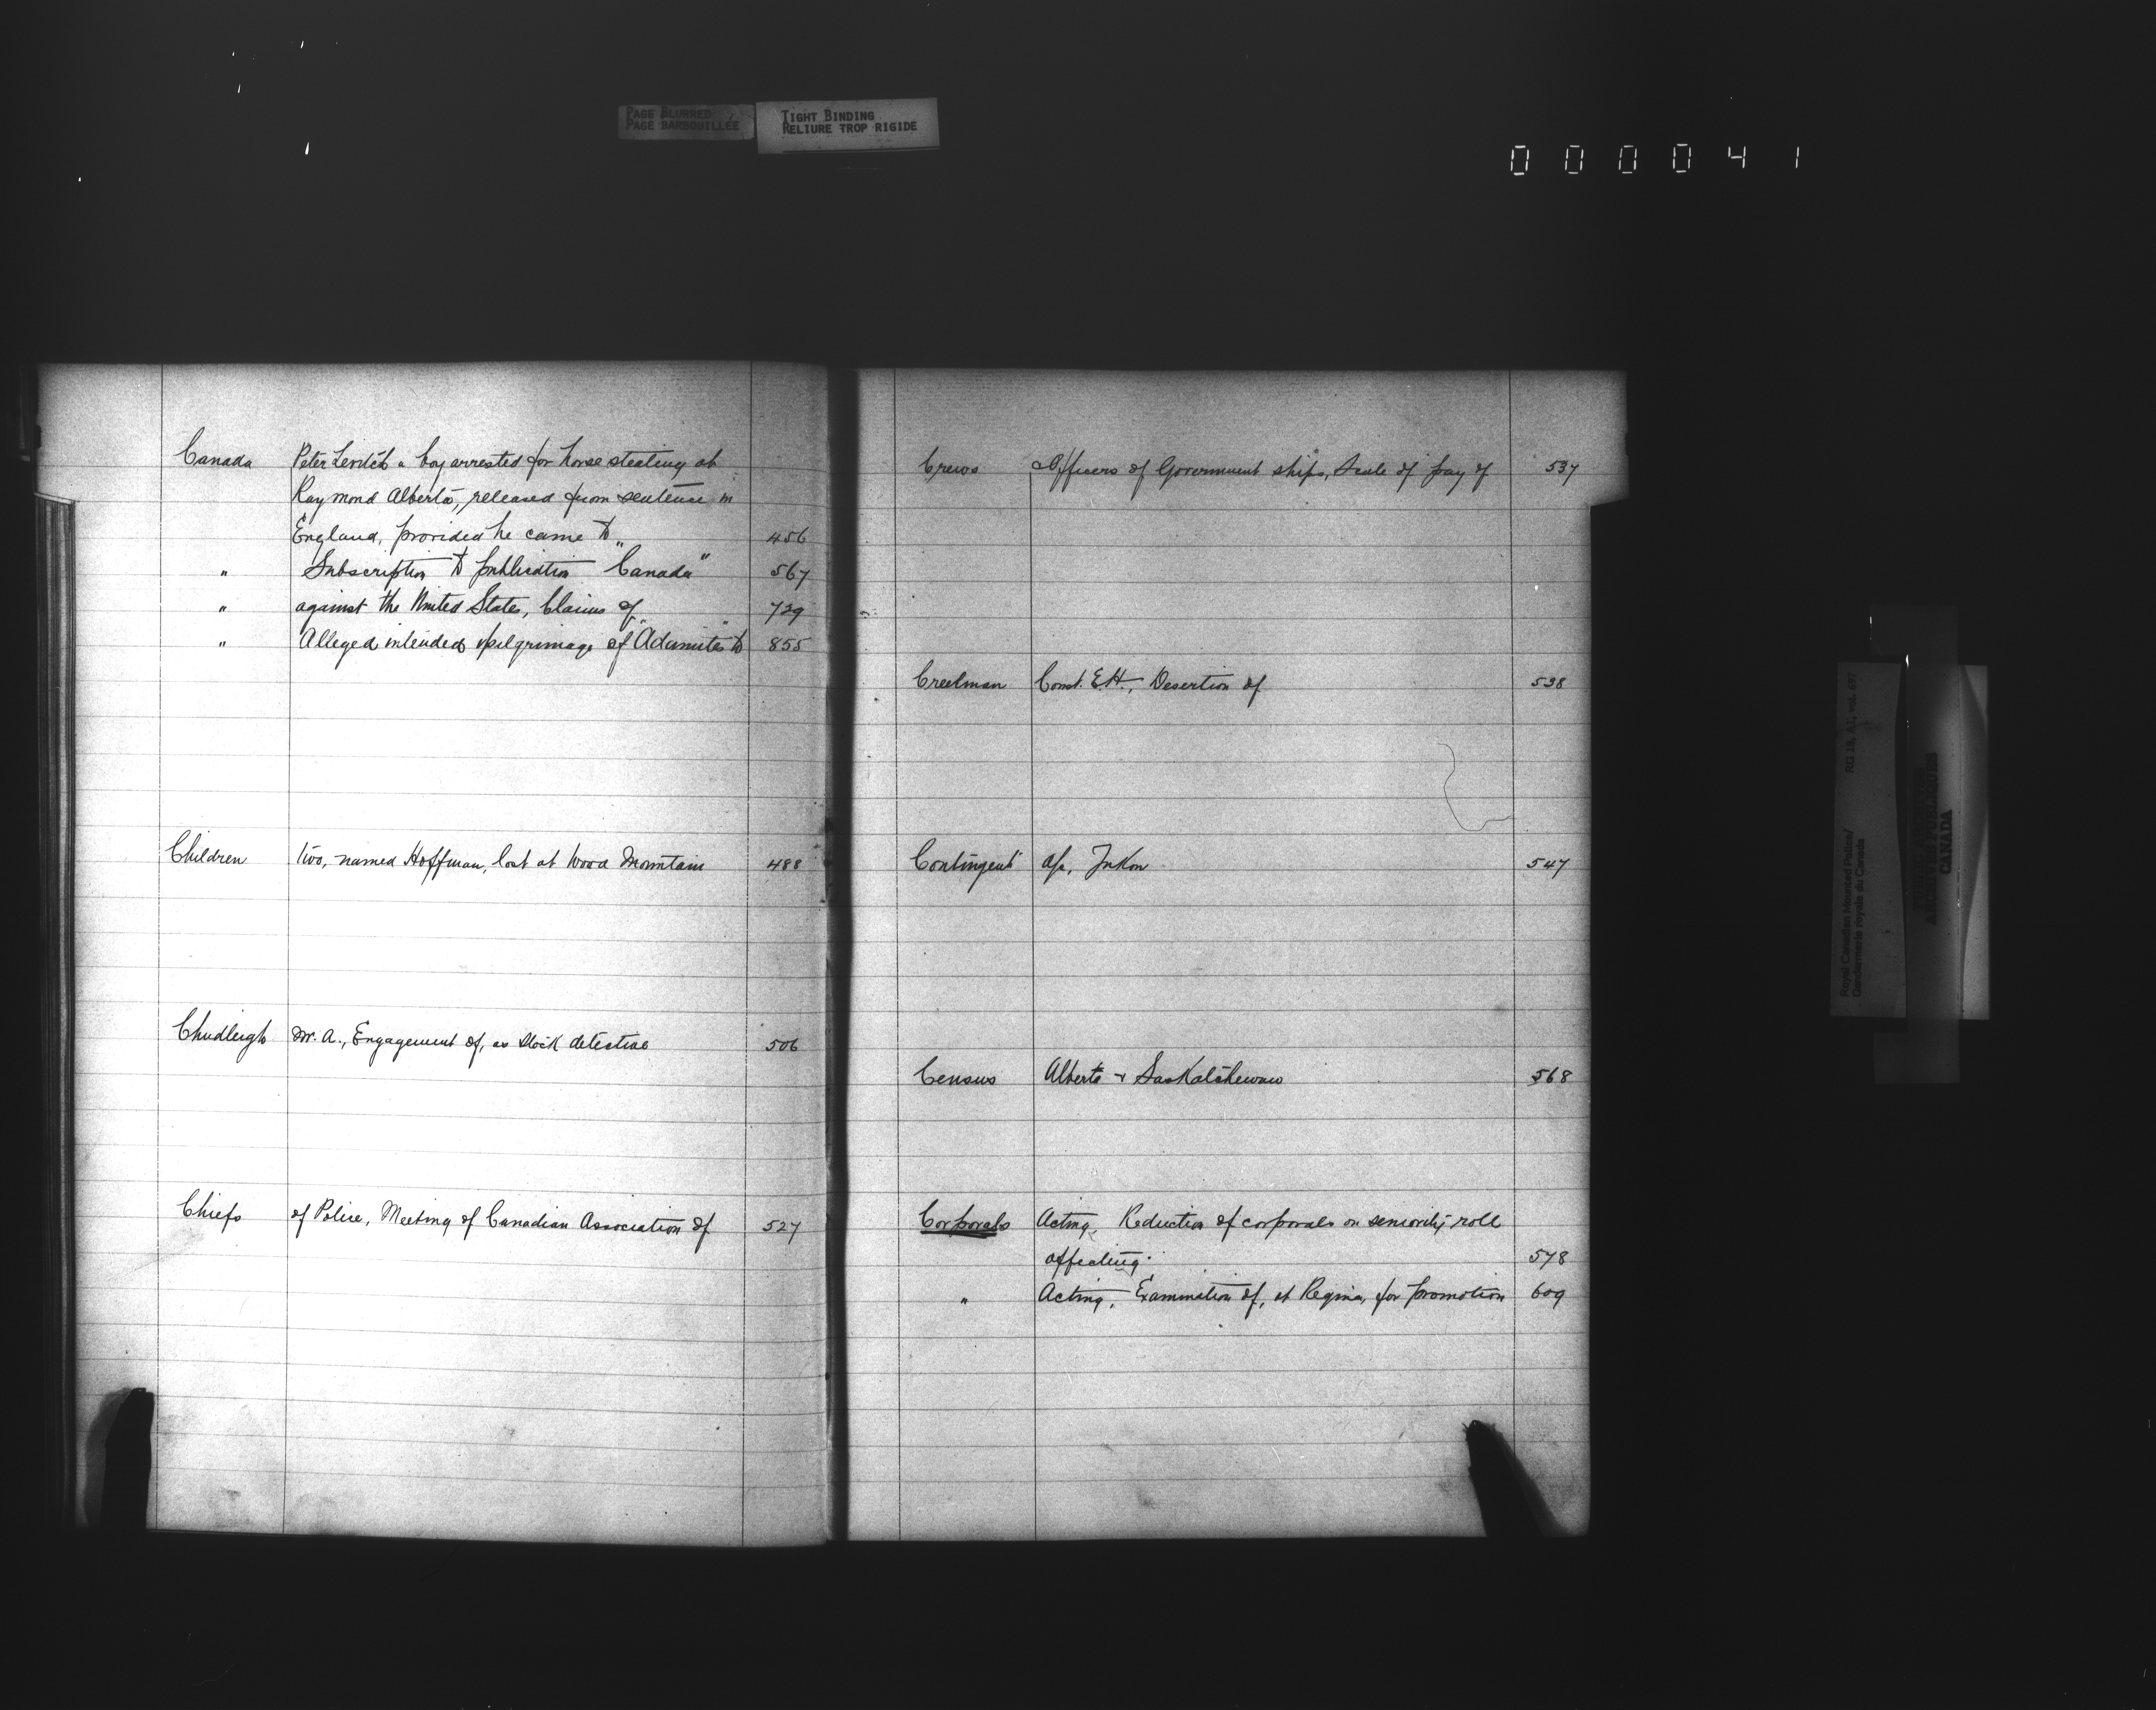 PAGE BLURRED
PAGE BARBOUILLÉE
TIGHT BINDING
RELIURE TROP RIGIDE
000041
Canada Peter a boy arrested for horse stealing at
Raymond Alberta, released from sentence in
England, provided he came to „ 456
" Subscription to publication "Canada" 567
" against the United States, Claims of 729
" Alleged intended pilgrimage of "Adamites" to 855
Children two, named Hoffman, lost at Wood Mountain 488
Chudleigh Mr. A., Engagement of, as Stock detective 506
Chiefs of Police, Meeting of Canadian Association of 527
Crews & Officers of Government ships, Scale of pay of 537
Creelman Const. E.H., Desertion of 538
"Contingent" a/c, Yukon 547
Census Alberta & Saskatchewan 568
Corporals Acting, Reduction of corporals on seniority roll
affecting 578
" Acting, Examination of, at Regina, for promotion 609
Royal Canadian Mounted Police/
Gendarmerie royale du Canada
RG 18, A1, vol. 697
ARCHIVES PUBLIQUES
CANADA